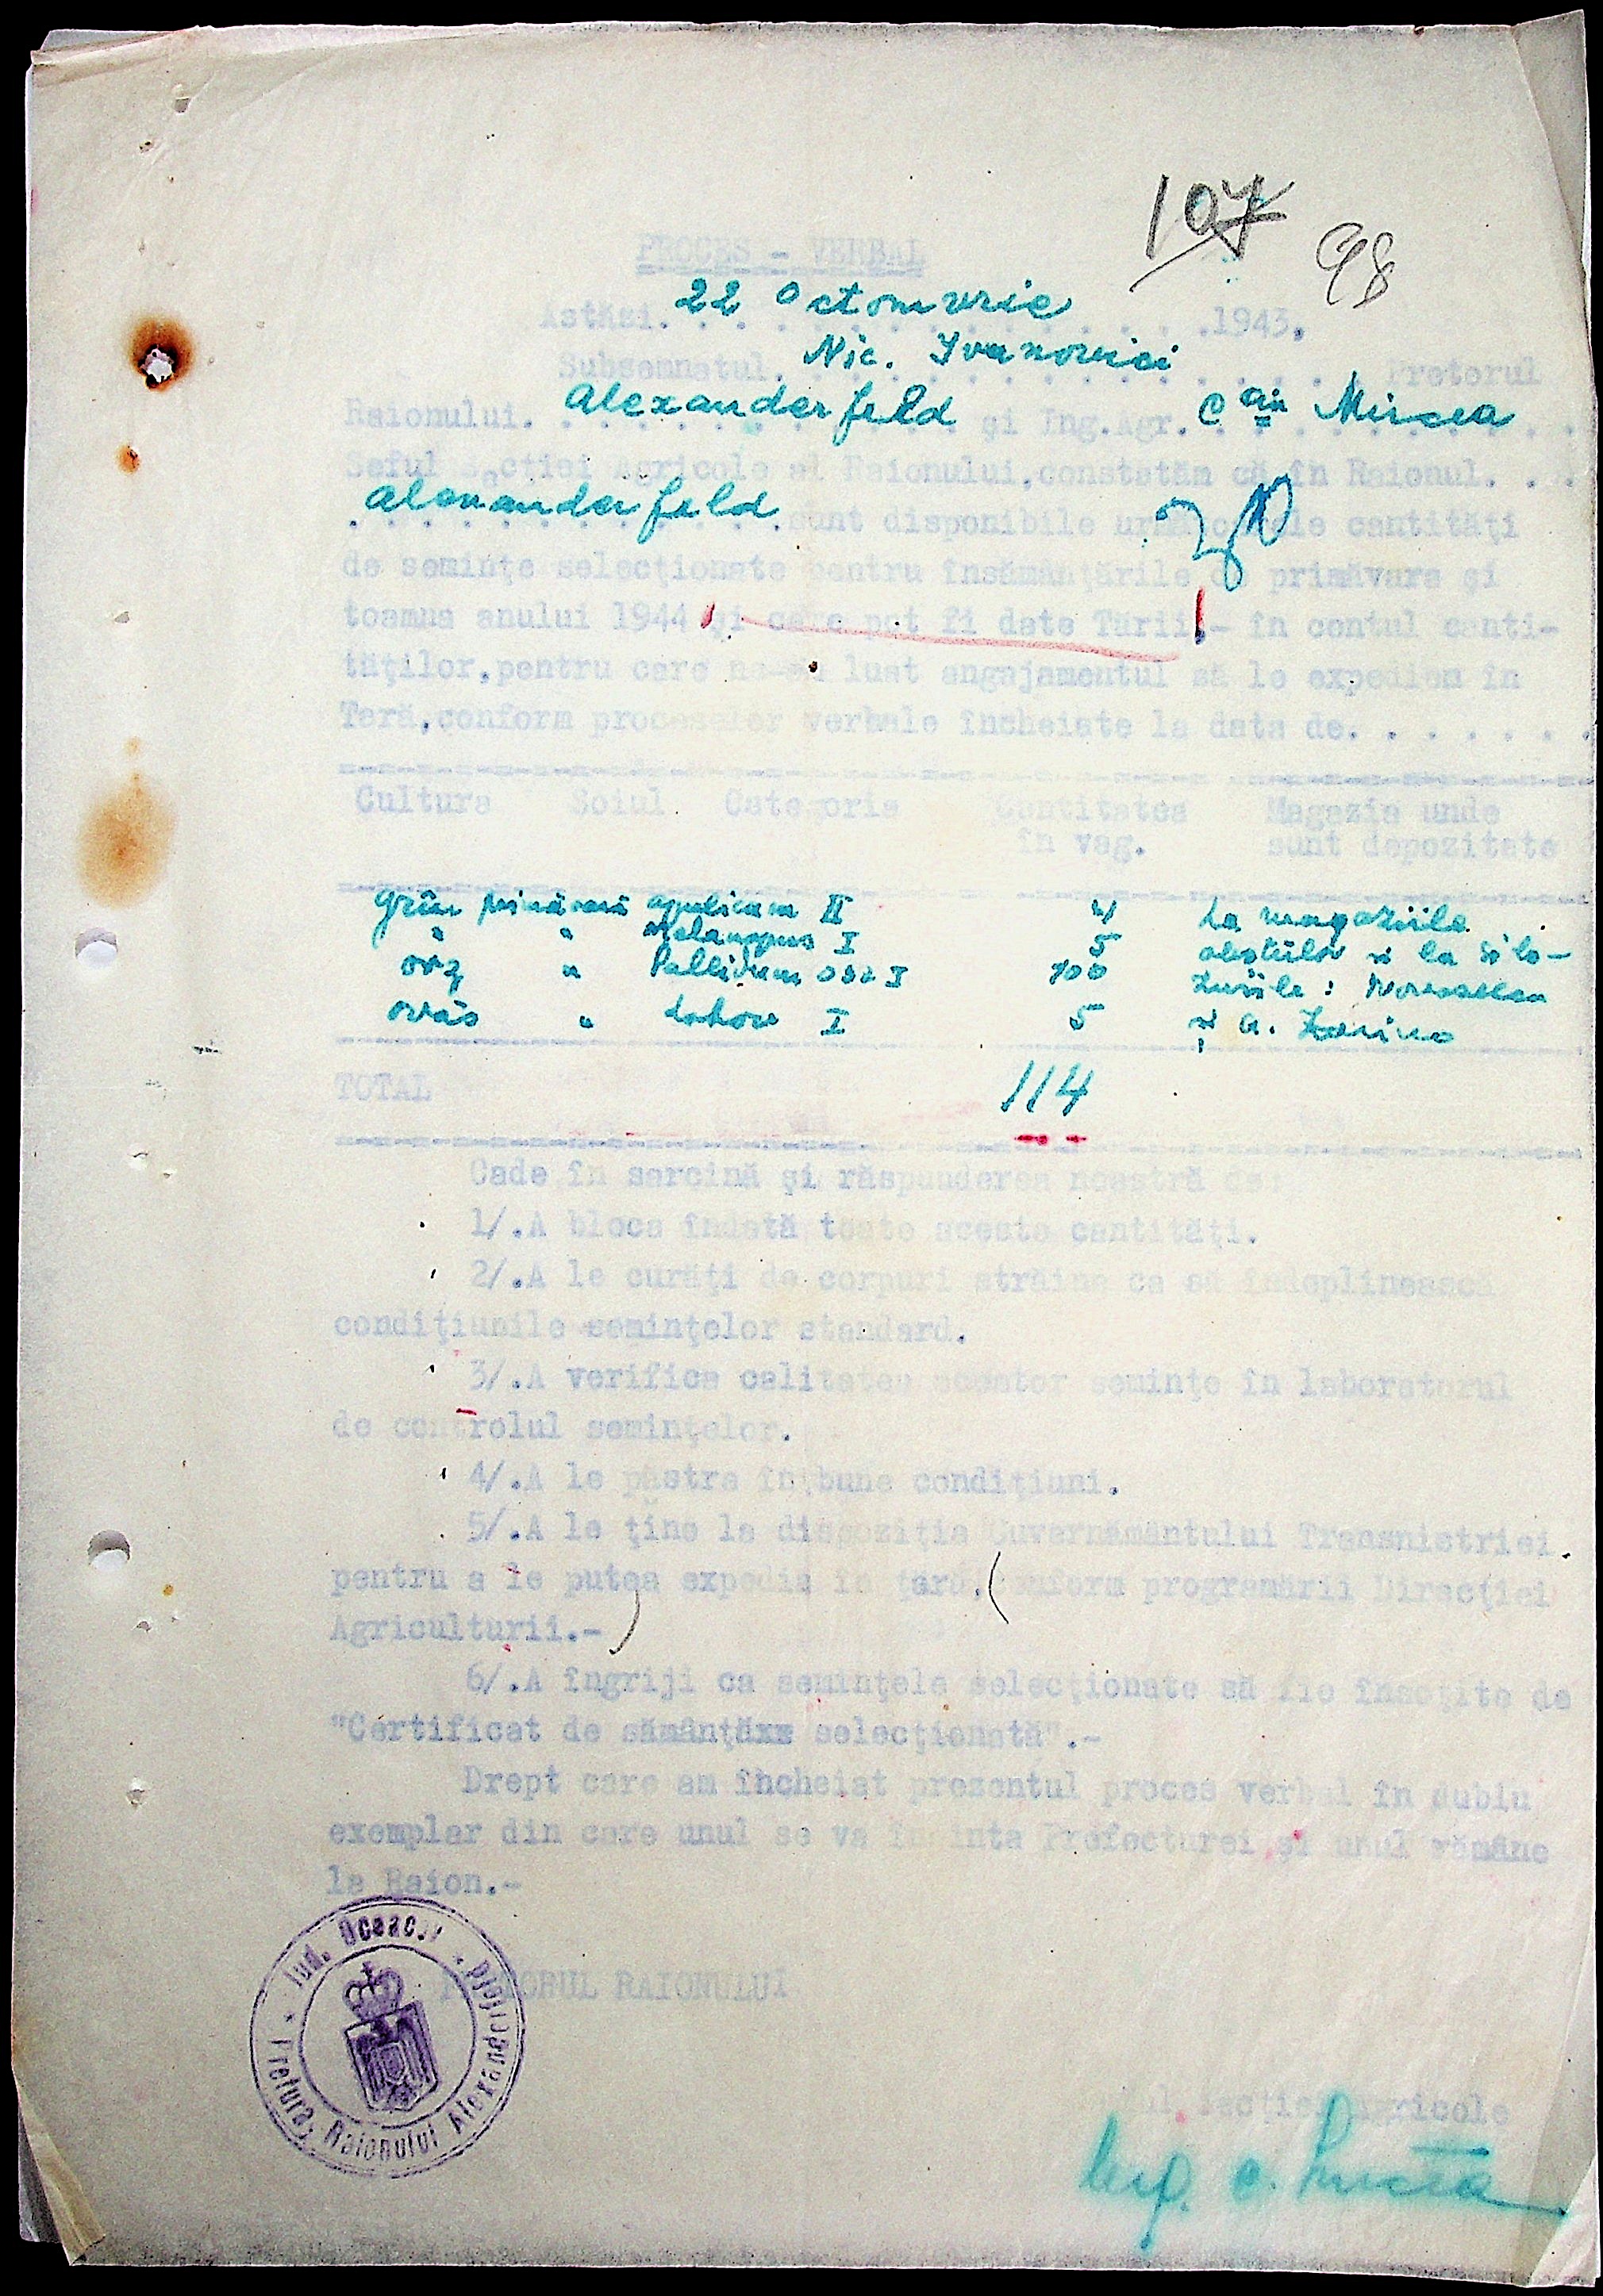 107
98
PROCES - VERBAL
Astăzi. 22 Octomvrie .1943.
Subsemnatul. Nic. Ivanovici . Pretorul
Raionului. Alexanderfeld şi Ing.Agr. C-tin Mircea
Seful Secţiei Agricole al Raionului,constatăm că în Raionul. . .
Alexanderfeld .sunt disponibile următoarele cantităţi
de seminţe selecţionate pentru însămânţările de primăvara şi
toamna anului 1944 şi care pot fi date Ţării.- în contul canti-
tăţilor,pentru care ne-am luat angajamentul să le expediem în
Ţară,conform proceselor verbale încheiate la data de. . . . . . .
Cultura Soiul Categoria Cantitatea Magazia unde
în vag. sunt depozitate
Grâu primăvară apulicum II 4 La magaziile
" " Melanopus I 5 obştiilor şi la silo-
orz " Pallidum 032 I 100 zurile :
ovăs " I 5 şi a.
TOTAL 114
Cade în sarcină şi răspunderea noastră ca:
1/.A bloca îndată toate aceste cantităţi.
2/.A le curăţi de corpuri străine ca să îndeplinească
condiţiunile seminţelor standard.
3/.A verifica calitatea acestor seminţe în laboratorul
de controlul seminţelor.
4/.A le păstra în bune condiţiuni.
5/.A le ţine la dispoziţia Guvernământului Transnistriei
pentru a le putea expedia în ţară,(conform programării Direcţiei
Agriculturii.-)
6/.A îngriji ca seminţele selecţionate să fie însoţite de
"Certificat de sămânţăxx selecţionată".-
Drept care am încheiat prezentul proces verbal în dublu
exemplar din care unul se va înainta Prefecturei,şi unul rămâne
la Raion.-
PRETORUL RAIONULUI
Jud. Oceacov * Pretura Raionului Alexanderfeld *
Secţiei Agricole
Ing. C. Mircea